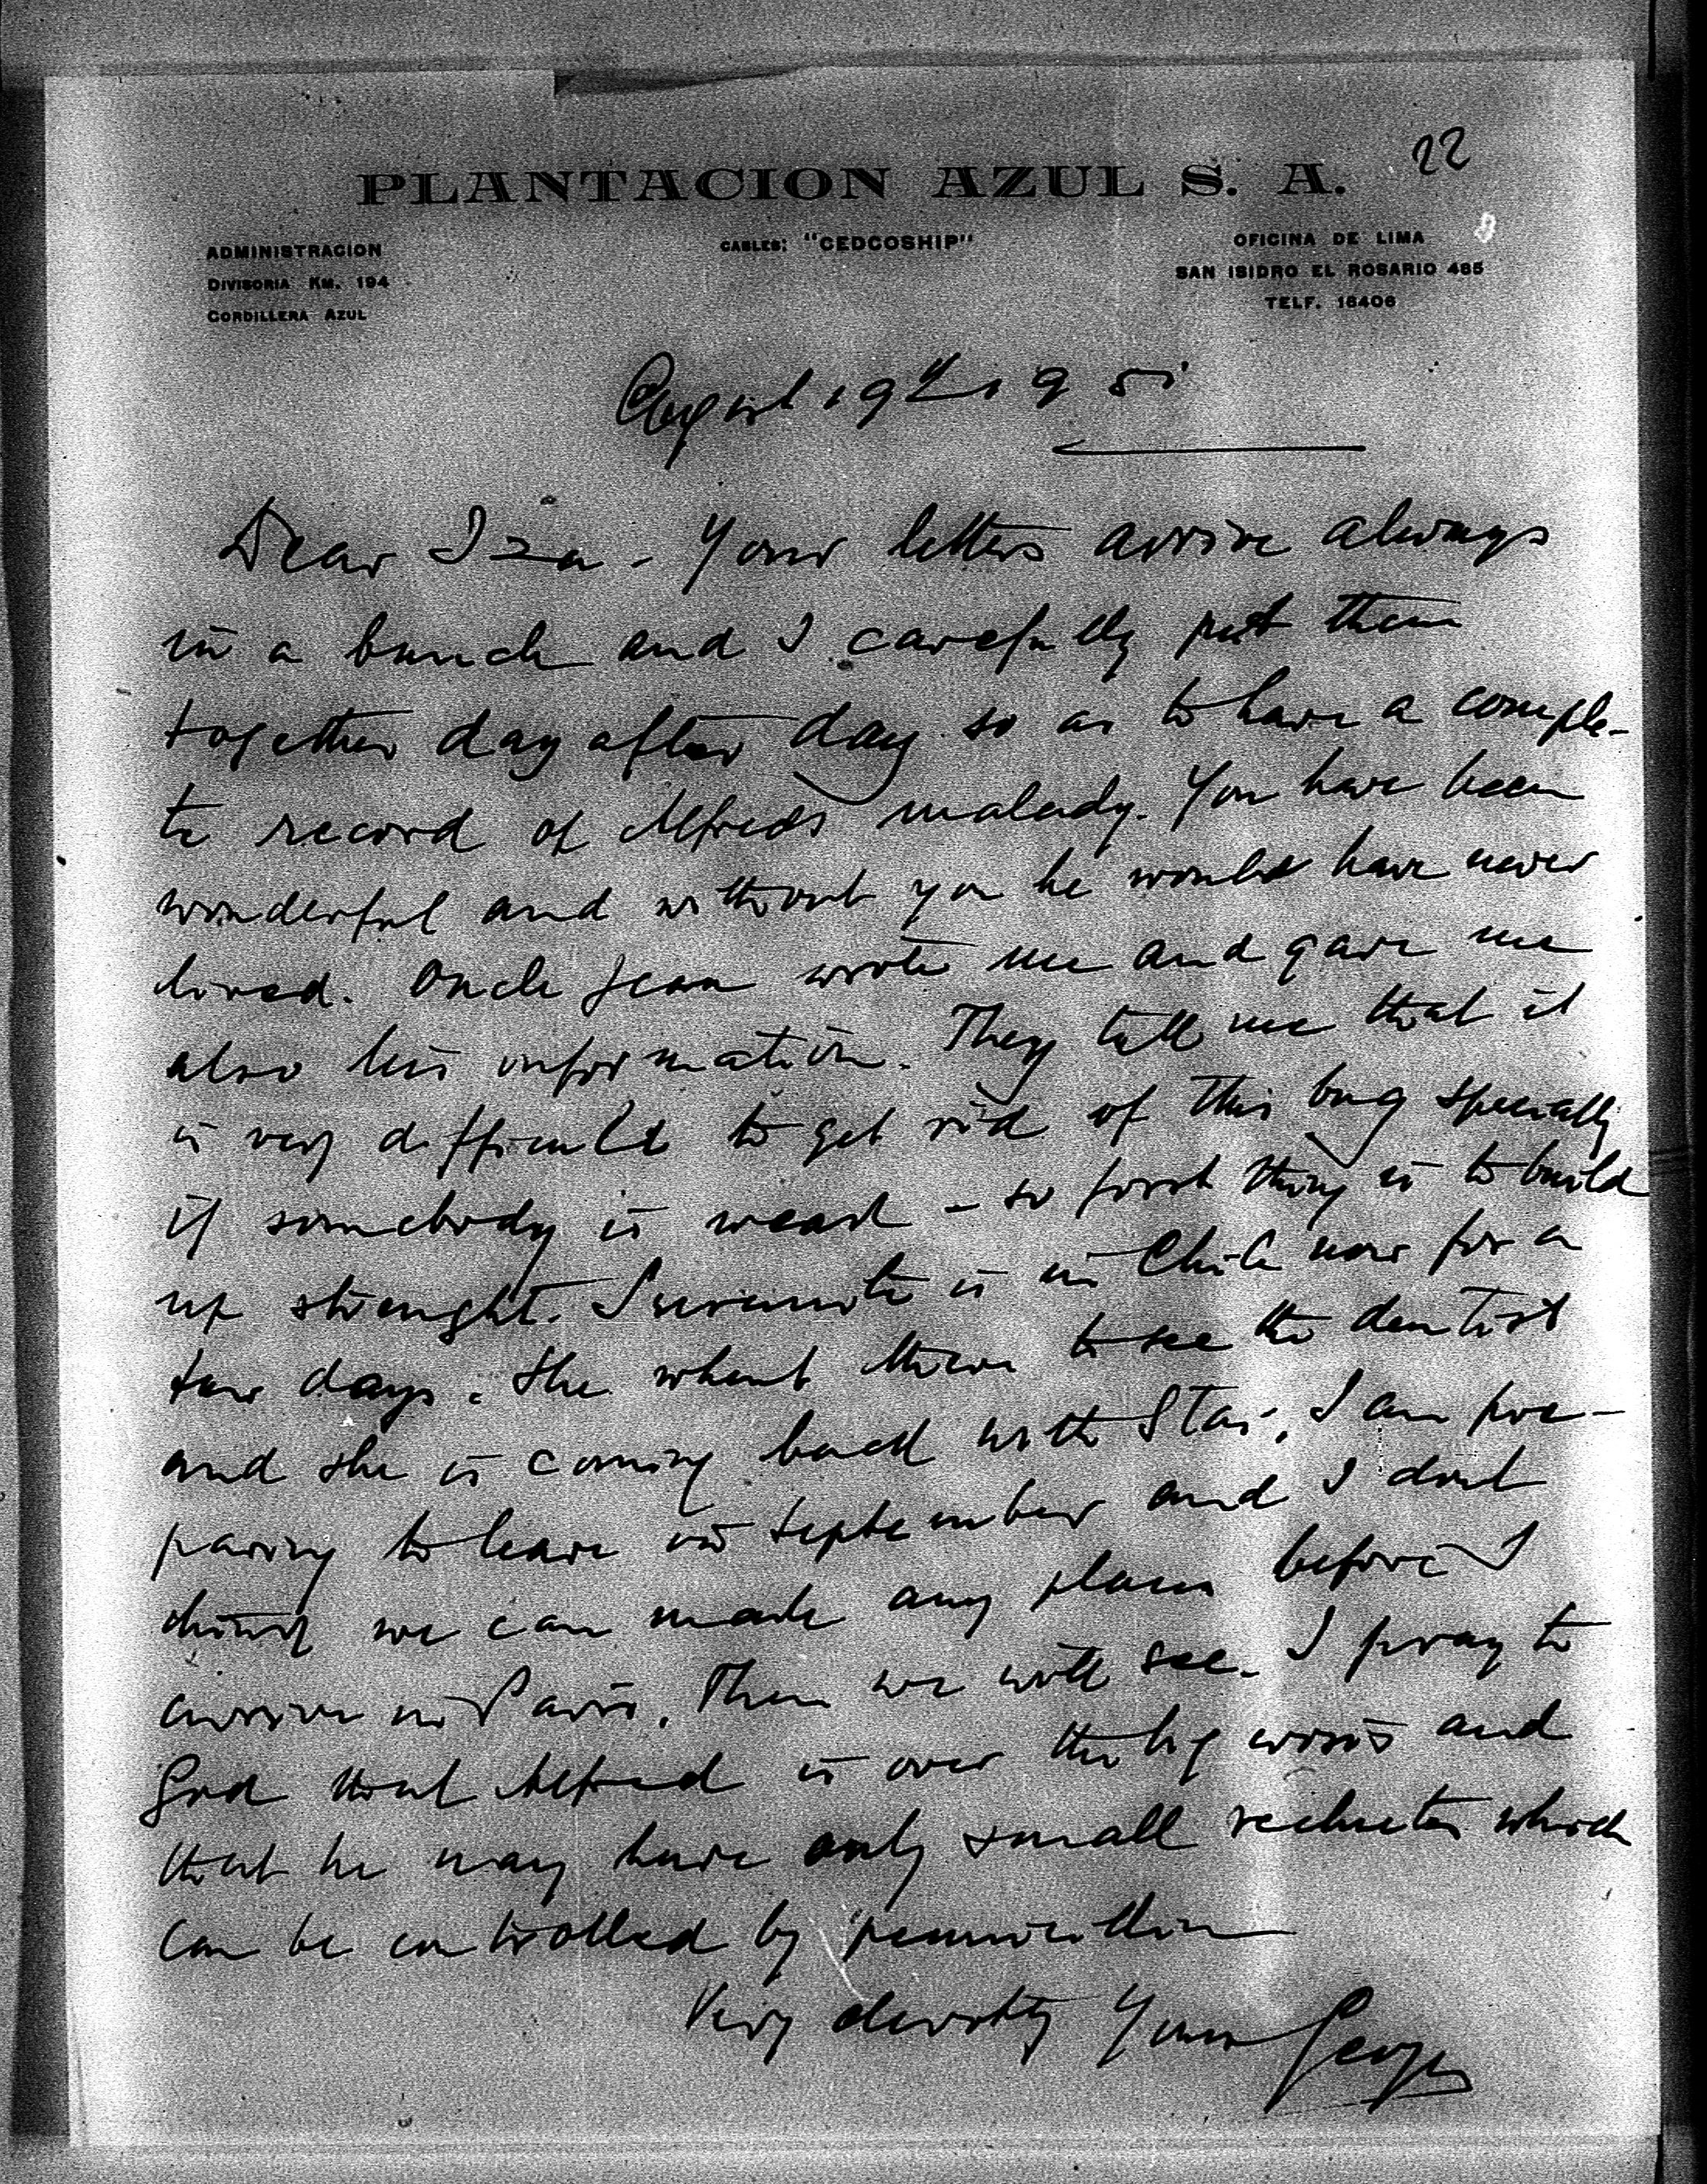 22
PLANTACION AZUL S. A.
ADMINISTRACION
DIVISORIA KM. 194
CORDILLERA AZUL
CABLES: "CEDCOSHIP"
OFICINA DE LIMA
SAN ISIDRO EL ROSARIO 485
TELF. 16406
August 19th 1951
Dear Iza - Your letters arrive always
in a bunch and I carefully put them
together day after day so as to have a comple-
te record of Alfreds malady. You have been
wonderful and without you he would have never
lived. Oncle Jean wrote me and gave me
also his information. They tell me that it
is very difficult to get rid of this bug specially
if somebody is weak - so first thing is to build
up strenght. is in Chile now for a
few days. She whent there to see the dentist
and she is coming back with Stas. I am pre-
paring to leave in September and I dont
think we can made any plans before I
arrive in Paris. Then we will see. I pray to
God that Alfred is over the big crisis and
that he may have only small rechutes which
can be controlled by pennicillin
Very devotly Yours George